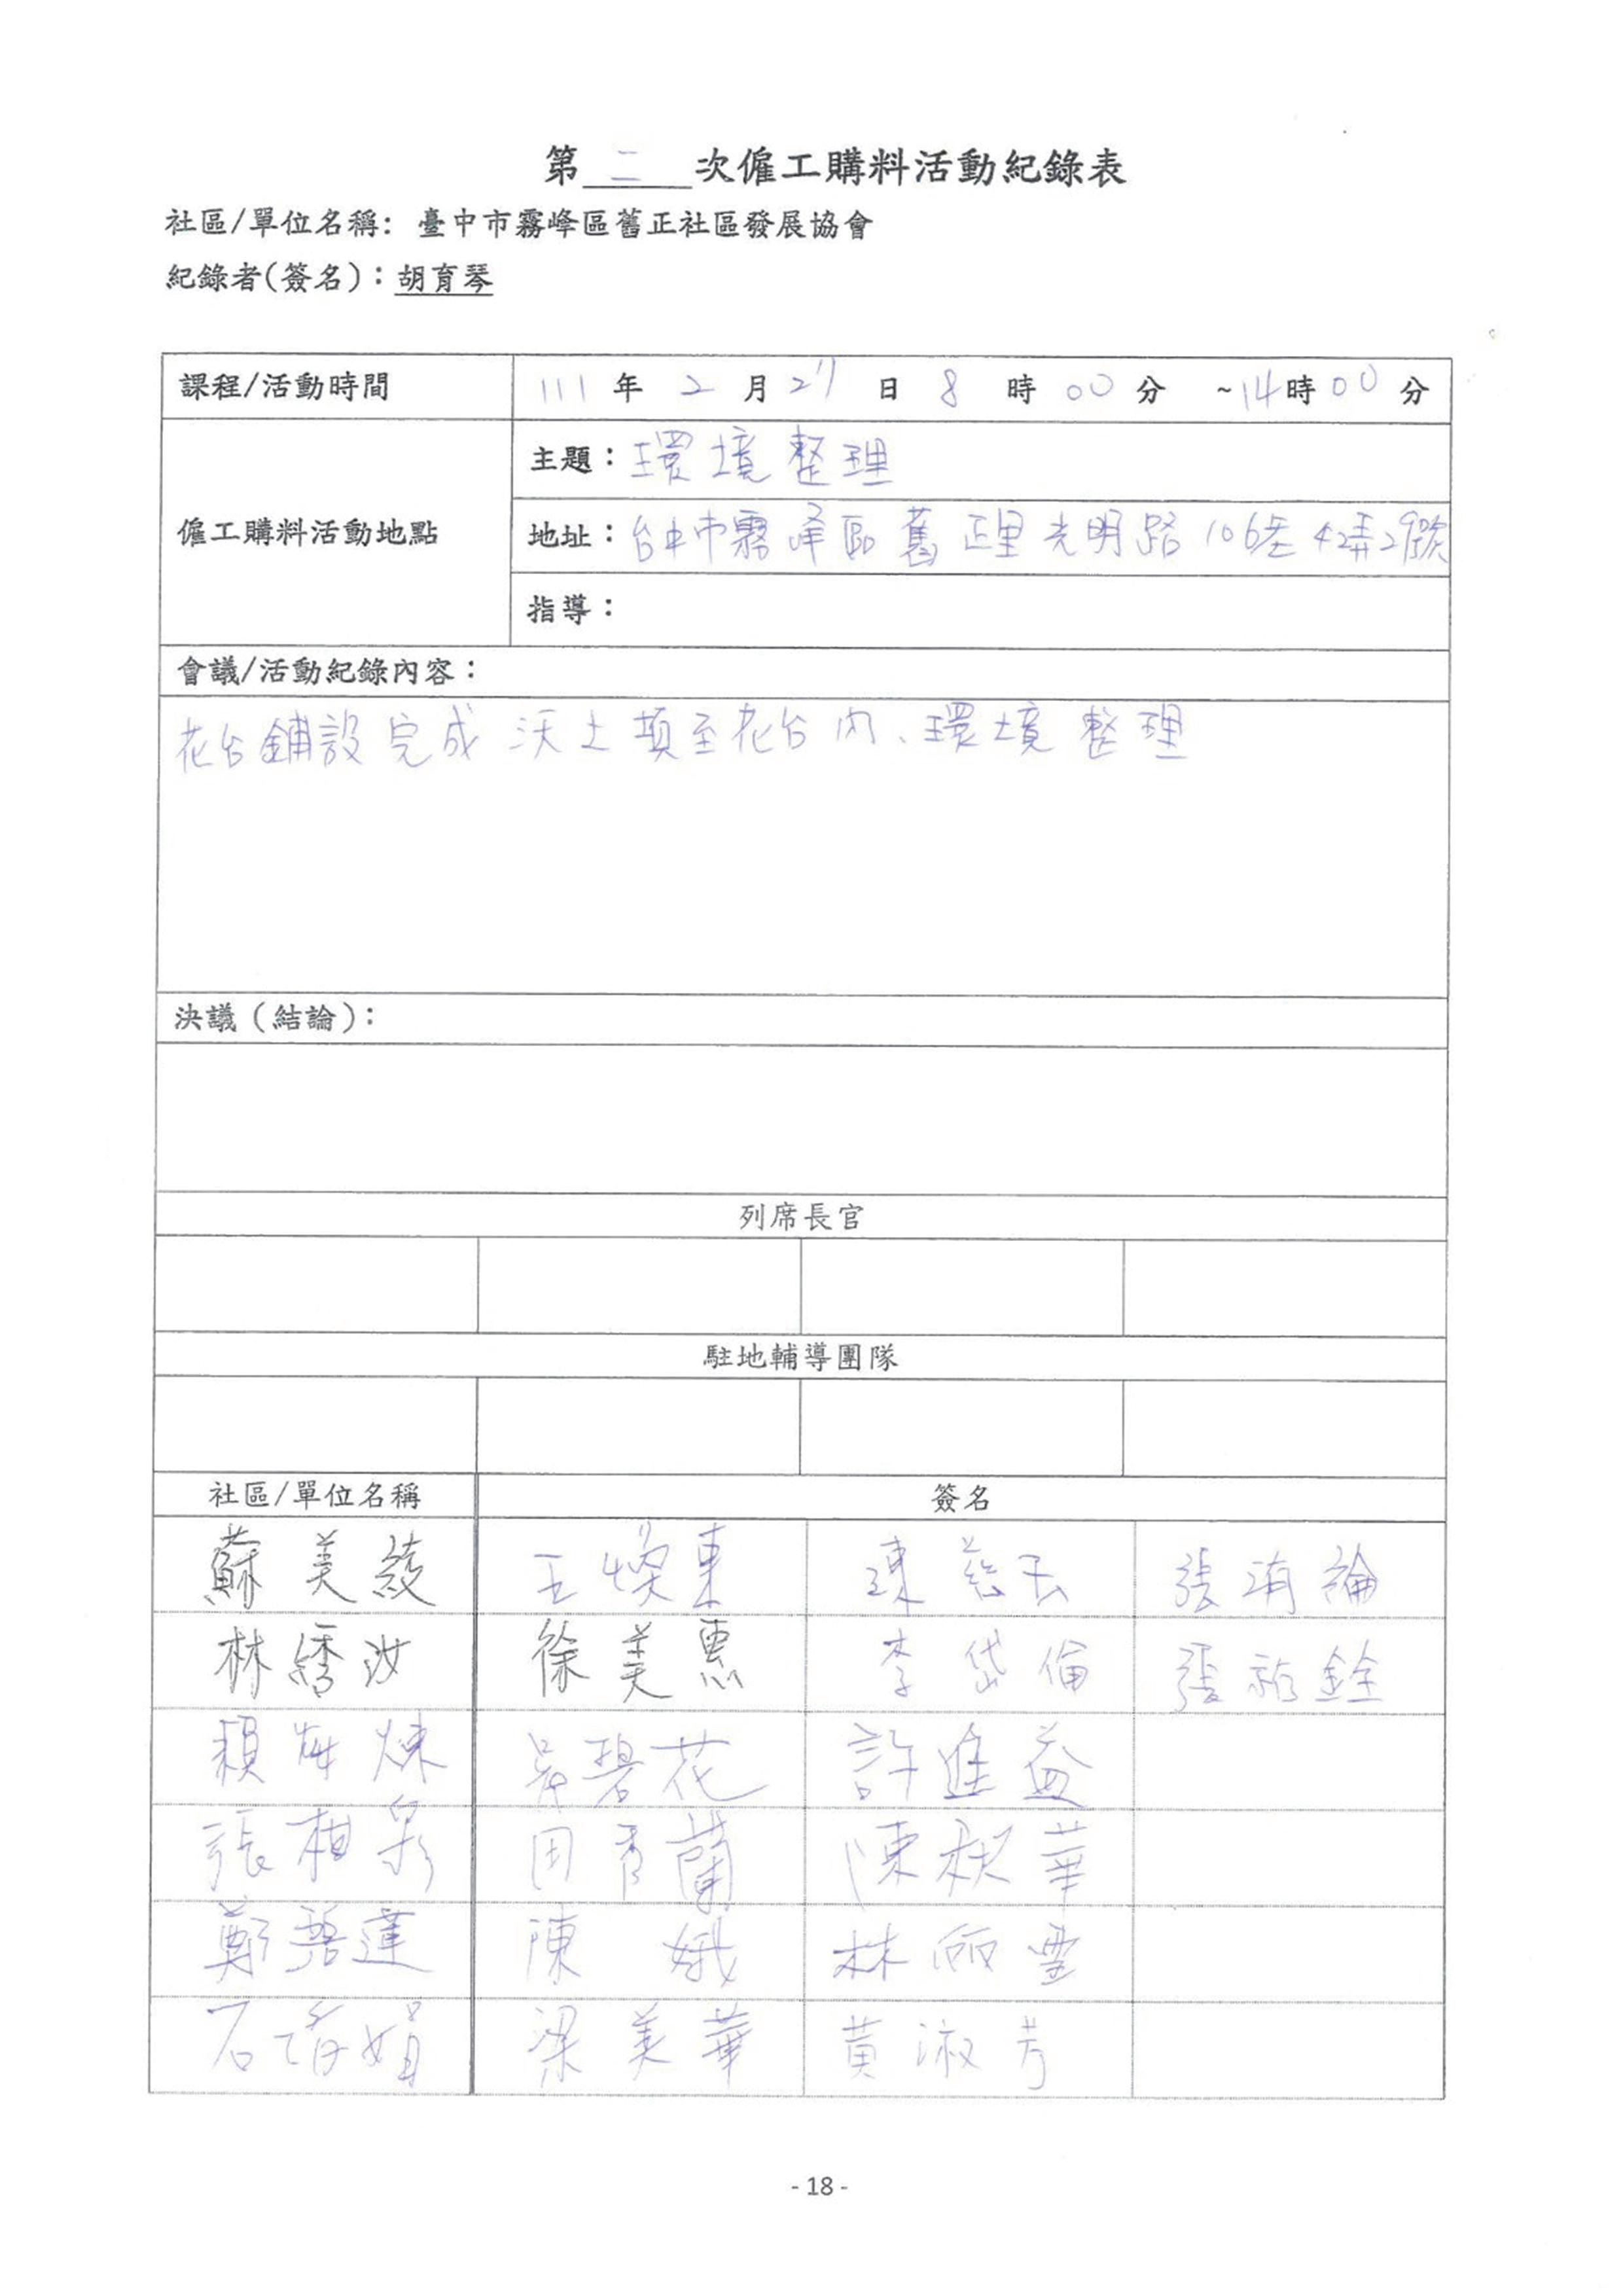 第 二 次僱工購料活動紀錄表
社區/單位名稱: 臺中市霧峰區舊正社區發展協會
紀錄者(簽名)：胡育琴
課程/活動時間 111 年 2 月 27 日 8 時 00 分 ~14時00分
僱工購料活動地點
主題：環境整理
地址：台中市霧峰區舊正里光明路106巷42弄29號
指導：
會議/活動紀錄內容：
花台鋪設完成 沃土填至花台內、環境整理
決議（結論）：
列席長官
駐地輔導團隊
社區/單位名稱 簽名
蘇美 王煥東 陳慈 張論
林綉汝 徐美惠 李岱倫 張銓
賴煉 吳碧花 許進益
張柏泉 田秀蘭 陳秋華
鄭碧蓮 陳娥 林丽雪
石娟 梁美華 黃淑芳
- 18 -